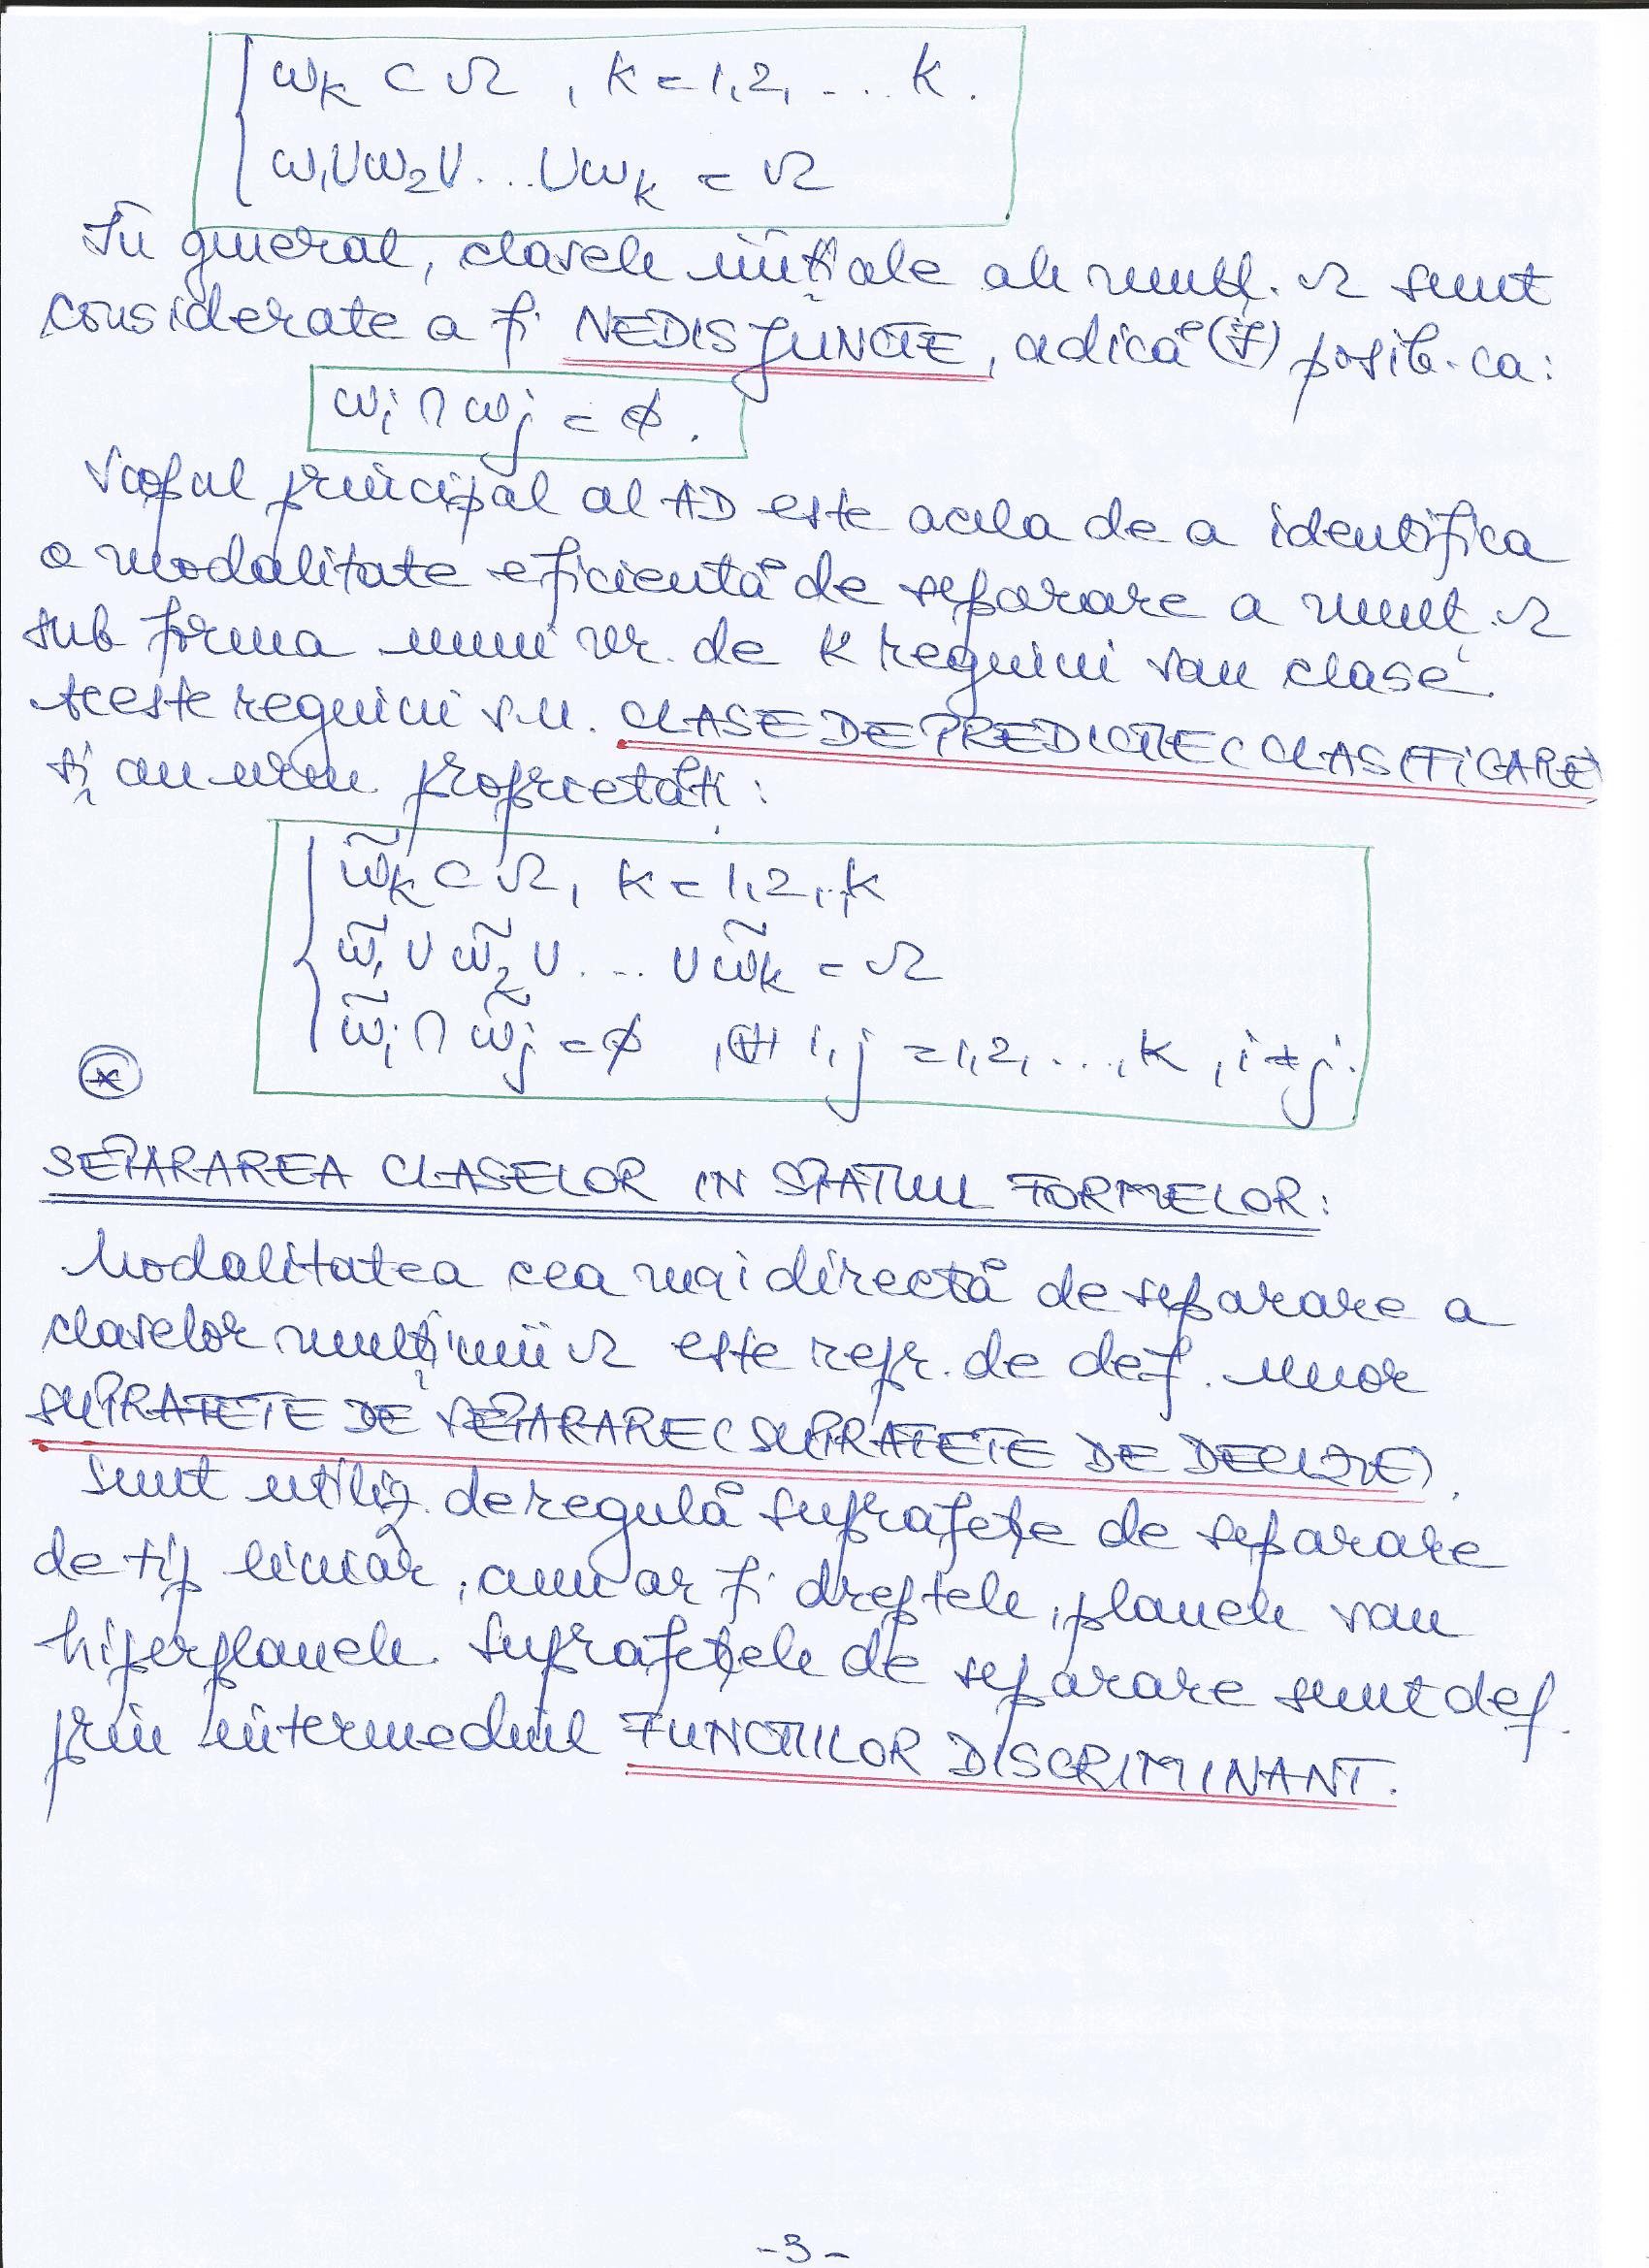 ωk ⊂ Ω , k = 1,2, ... k.
ω1 ∪ ω2 ∪ ... ∪ ωk = Ω
În general, clasele inițiale ale mulț. Ω sunt
considerate a fi NEDISJUNCTE, adică (∃) posib. ca:
ωi ∩ ωj = ∅.
Scopul principal al AD este acela de a identifica
o modalitate eficientă de separare a mulț. Ω
sub forma unui nr. de K regiuni sau clase.
Aceste regiuni s.n. CLASE DE PREDICTIE (CLASIFICARE)
și au urm. proprietăți:
ω̃k ⊂ Ω, k = 1,2,..,k
ω̃1 ∪ ω̃2 ∪ ... ∪ ω̃k = Ω
ω̃i ∩ ω̃j = ∅ , (∀) i,j = 1,2, ..., k , i ≠ j.
*
SEPARAREA CLASELOR IN SPATIUL FORMELOR:
Modalitatea cea mai directă de separare a
claselor mulțimii Ω este repr. de def. unor
SUPRAFETE DE SEPARARE (SUPRAFETE DE DECIZIE).
Sunt utiliz. de regulă suprafețe de separare
de tip liniar, cum ar fi dreptele, planele sau
hiperplanele. Suprafețele de separare sunt def.
prin intermediul FUNCTIILOR DISCRIMINANT.
-3-